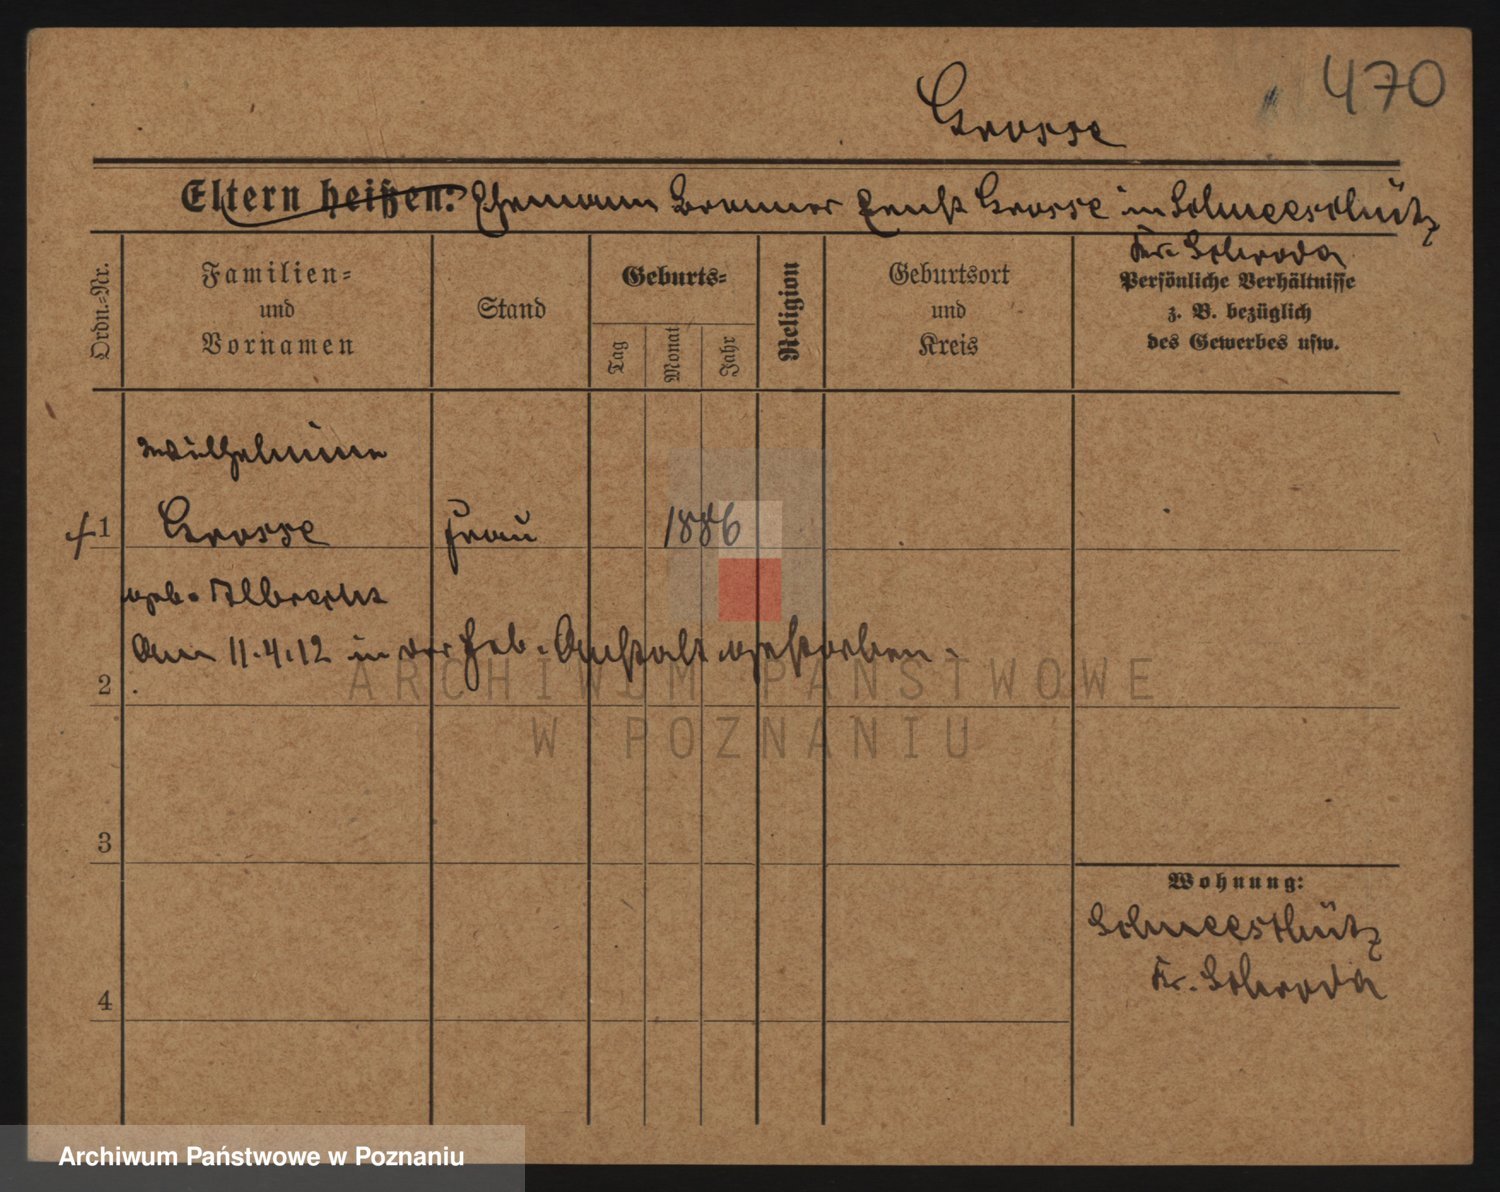 470
Grosse
Eltern heißen: Ehemann Brenner Ernst Grosse in Schneeschütz
Kr. Schroda
Ordn.-Nr.
Familien- und Vornamen
Stand
Geburts-
Tag
Monat
Jahr
Religion
Geburtsort und Kreis
Persönliche Verhältnisse
z. B. bezüglich
des Gewerbes usw.
Wilhelmine
1 Grosse Frau 1886
geb. Albrecht
Am 11.4.12 in der Heb. Anstalt gestorben.
2
3
4
Wohnung:
Schneeschütz
Kr. Schroda
ARCHIWUM PAŃSTWOWE
W POZNANIU
Archiwum Państwowe w Poznaniu